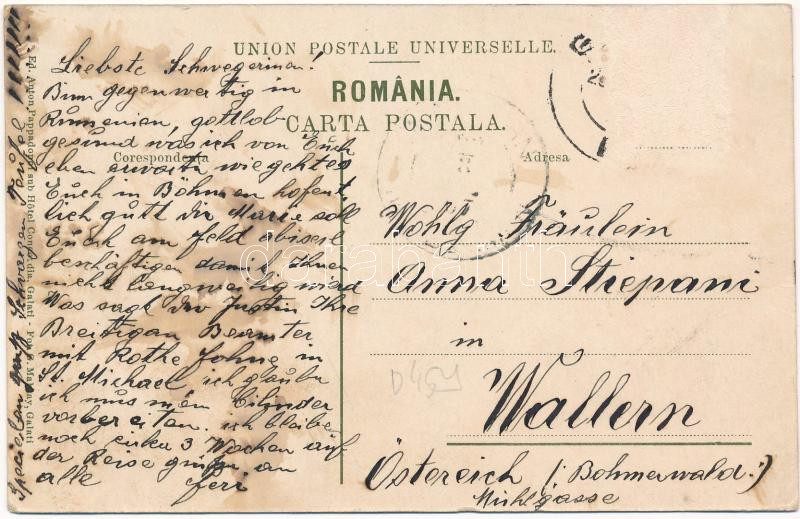 UNION POSTALE UNIVERSELLE.
ROMÂNIA.
CARTA POSTALA.
Corespondenta
Adresa
Liebste Schwegerinen!
Bin gegenwertig in
Rumenien, gottlob
gesund was ich von Euch
eben erwarte wie geht es
Euch in Böhmen hofent
lich gutt die Marie soll
Euch am feld
beschäftigen damit Ihnen
nicht langweilig wird
Was sagt die Justin Ihre
Breitigan Beamter
mit Rothe Fohne in
St. Michael ich glaube
ich mus mein Cilinder
vorbereiten. ich bleibe
noch cirka 3 Wochen auf
der Reise grüße an
alle feri
Wohlg Fräulein
Anna Stiepani
in
Wallern
Östereich (: Bohmerwald :)
Mühlgasse
Specielen gruß Schwarzen Teufel
Ed. Anton Pappadopol sub Hôtel Concordia, Galati
databank.hu